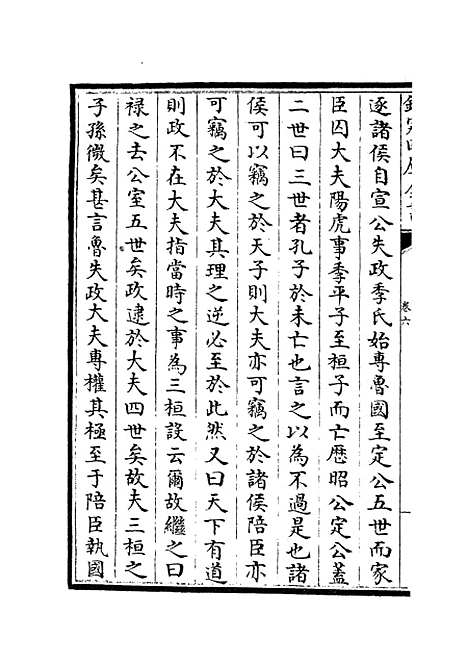 欽定四庫全書
卷六
逐諸侯自宣公失政季氏始專魯國至定公五世而家
臣囚大夫陽虎事季平子至桓子而亡歷昭公定公蓋
二世曰三世者孔子於未亡也言之以為不過是也諸
侯可以竊之於天子則大夫亦可竊之於諸侯陪臣亦
可竊之於大夫其理之逆必至於此然又曰天下有道
則政不在大夫指當時之事為三桓設云爾故繼之曰
禄之去公室五世矣政逮於大夫四世矣故夫三桓之
子孫微矣甚言魯失政大夫專權其極至于陪臣執國